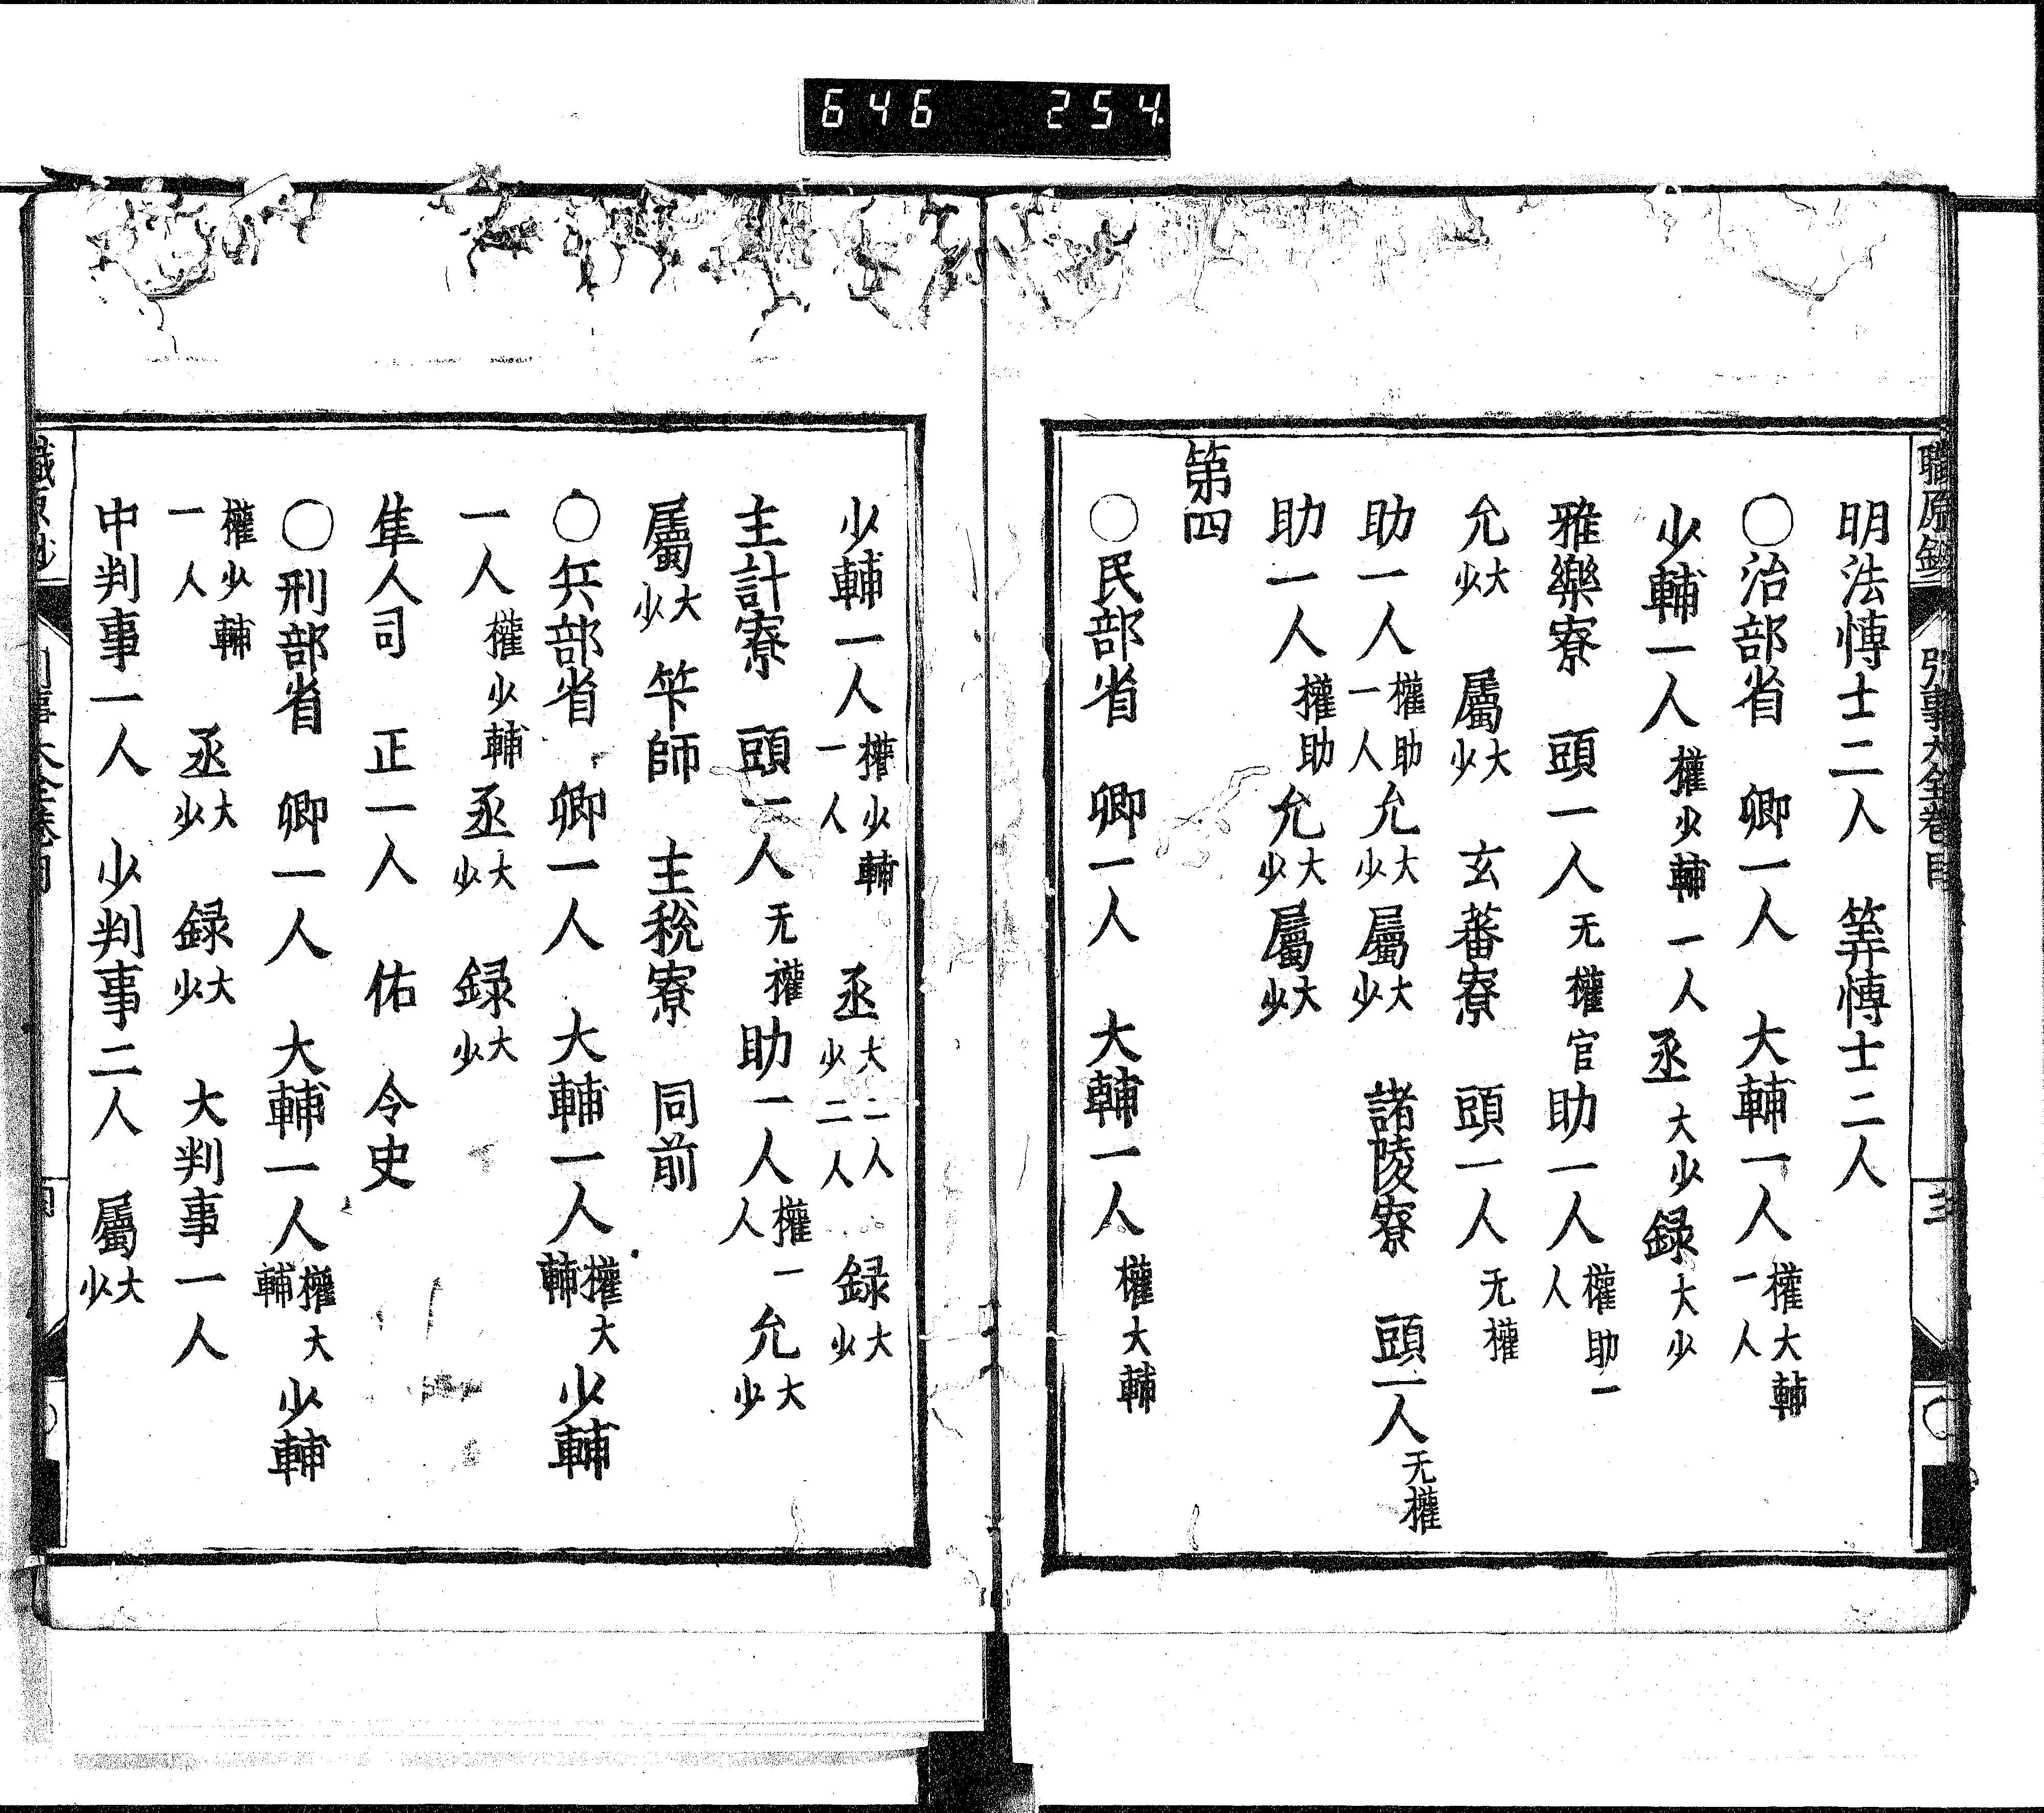 646 254
職原鈔 引事大全卷目 三
明法博士二人 筭博士二人
○治部省 卿一人 大輔一人權大輔一人
少輔一人權少輔一人丞大少録大少
雅樂寮 頭一人无權官助一人權助一人
允大少 屬大少 玄蕃寮 頭一人无權
助一人權助一人允大少屬大少 諸陵寮 頭一人无權
助一人權助允大少屬大少
第四
○民部省 卿一人 大輔一人權大輔
少輔一人權少輔一人 丞大二人少二人 録大少
主計寮 頭一人无權助一人權一人允大少
屬大少 笇師 主税寮 同前
○兵部省 卿一人 大輔一人權大輔少輔
一人權少輔丞大少 録大少
隼人司 正一人 佑 令史
○刑部省 卿一人 大輔一人權大輔少輔
一人權少輔 丞大少 録大少 大判事一人
中判事一人 少判事二人 屬大少